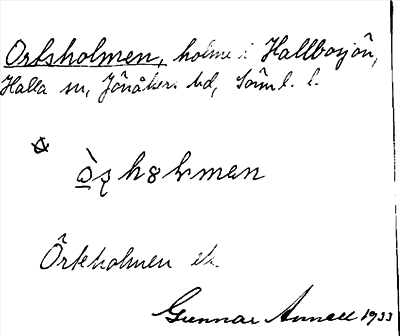 Ortsholmen, holme i Hallbosjön,
Halla sn, Jönåkers hd, Södml. l.
ò̠ʂhɞlmen
Örtsholmen ek.
Gunnar Annell 1933